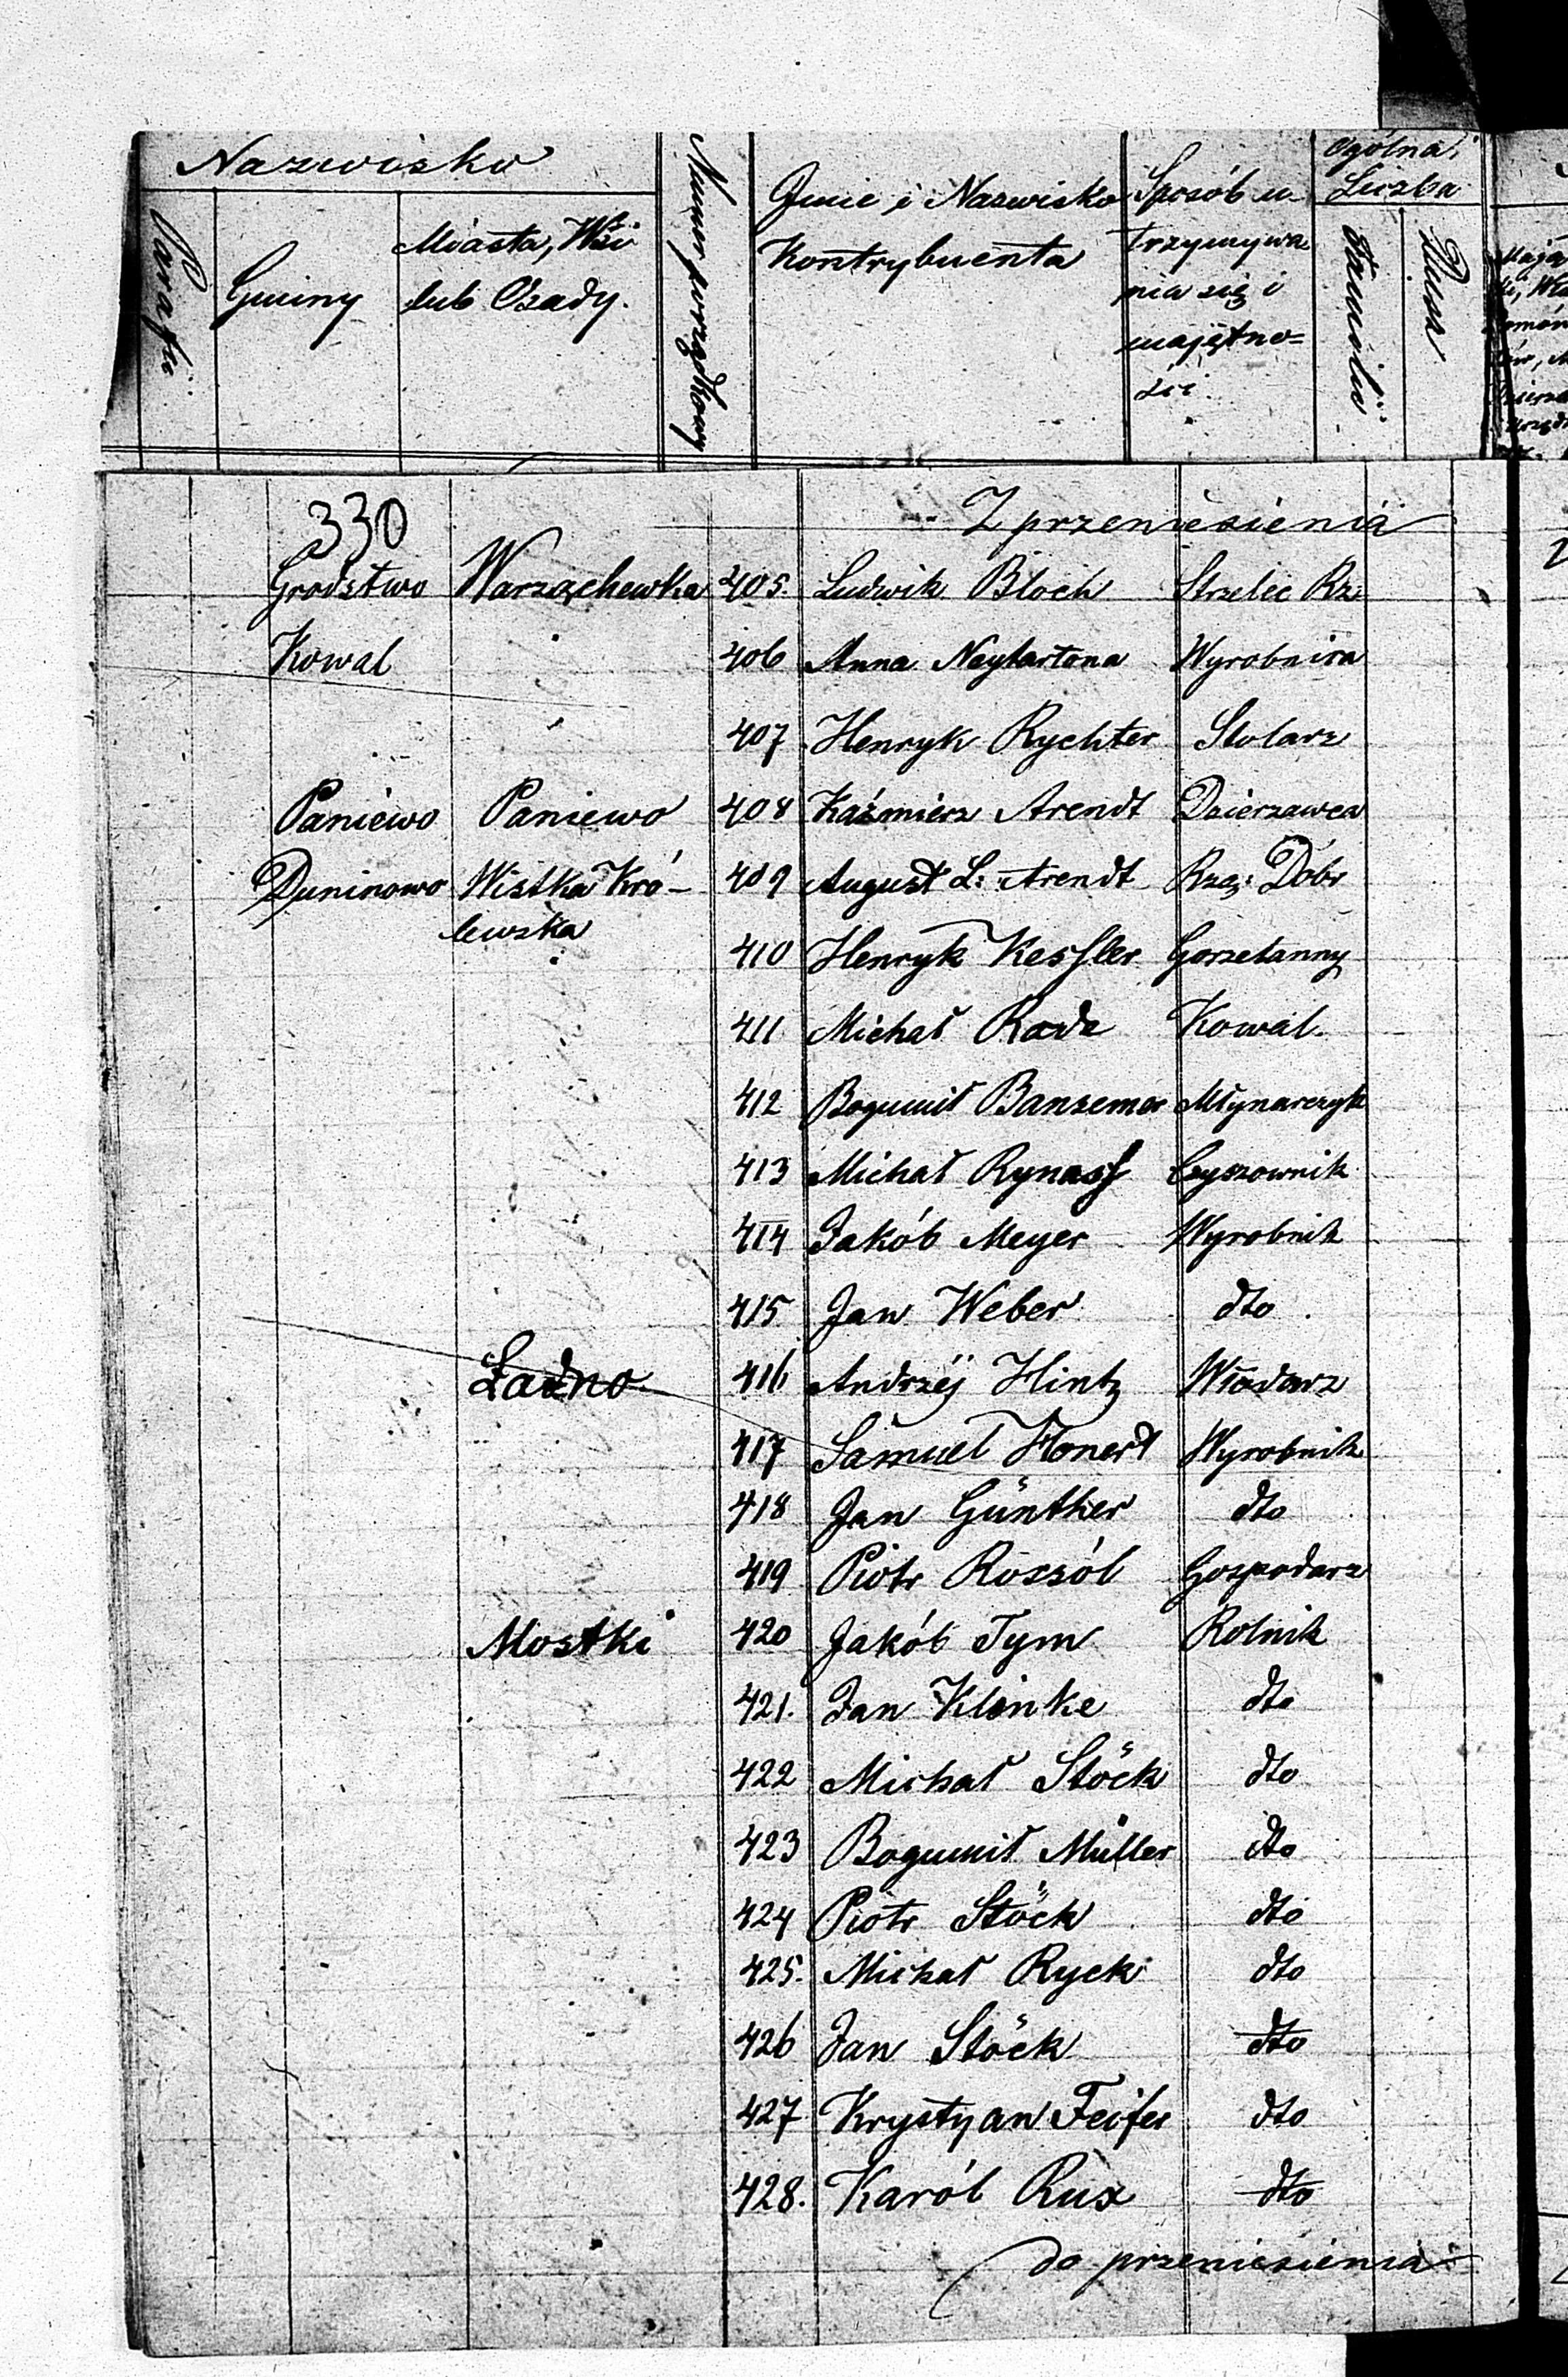 Nazwisko
Parafii
Gminy
Miasta, Wsi
lub Osady.
Numer porządkowy
Imie i Nazwisko
Kontrybuenta
Sposób u-
trzymywa
nia się i
majętno=
ści.
Ogólna
Liczba
Familii
Dusz
330
Z przeniesienia
Grodztwo Warząchewka 405. Ludwik Bloch Strzelec Rz:
Kowal 406 Anna Neylartona Wyrobnica
407 Henryk Rychter Stolarz
Paniewo Paniewo 408 Kaźmierz Arendt Dzierzawca
Duninowo Wistka Kró- 409 August L: Arendt Rzą: Dóbr
lewska
410 Henryk Kessler Gorzelanny
411 Michał Rade Kowal.
412 Bogumił Banzemer Młynarczyk
413 Michał Rynass
414 Jakób Meyer Wyrobnik
415 Jan Weber dto
Ładno 416 Andrzéj Hintz Włodarz
417 Samuel Honert Wyrobnik
418 Jan Günther dto
419 Piotr Rossól Gospodarz
Mostki 420 Jakób Tym Rolnik
421. Jan Klinke dto
422 Michał Stöck dto
423 Bogumił Müller dto
424 Piotr Stöck dto
425. Michał Ryck dto
426 Jan Stöck dto
427 Krystyan Feifer dto
428. Karól Rux dto
do przeniesienia